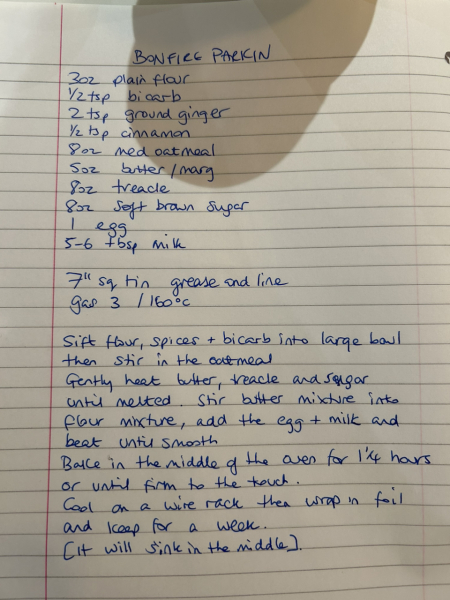 BONFIRE PARKIN
3oz plain flour
1/2 tsp bicarb
2 tsp ground ginger
1/2 tsp cinnamon
8oz med oatmeal
5oz butter/marg
8oz treacle
8oz soft brown sugar
1 egg
5-6 tbsp milk
7" sq tin grease and line
gas 3 / 160°c
Sift flour, spices + bicarb into large bowl
then stir in the oatmeal
Gently heat butter, treacle and sugar
until melted. Stir butter mixture into
flour mixture, add the egg + milk and
beat until smooth
Bake in the middle of the oven for 1 1/4 hours
or until firm to the touch.
Cool on a wire rack then wrap in foil
and keep for a week.
[It will sink in the middle].